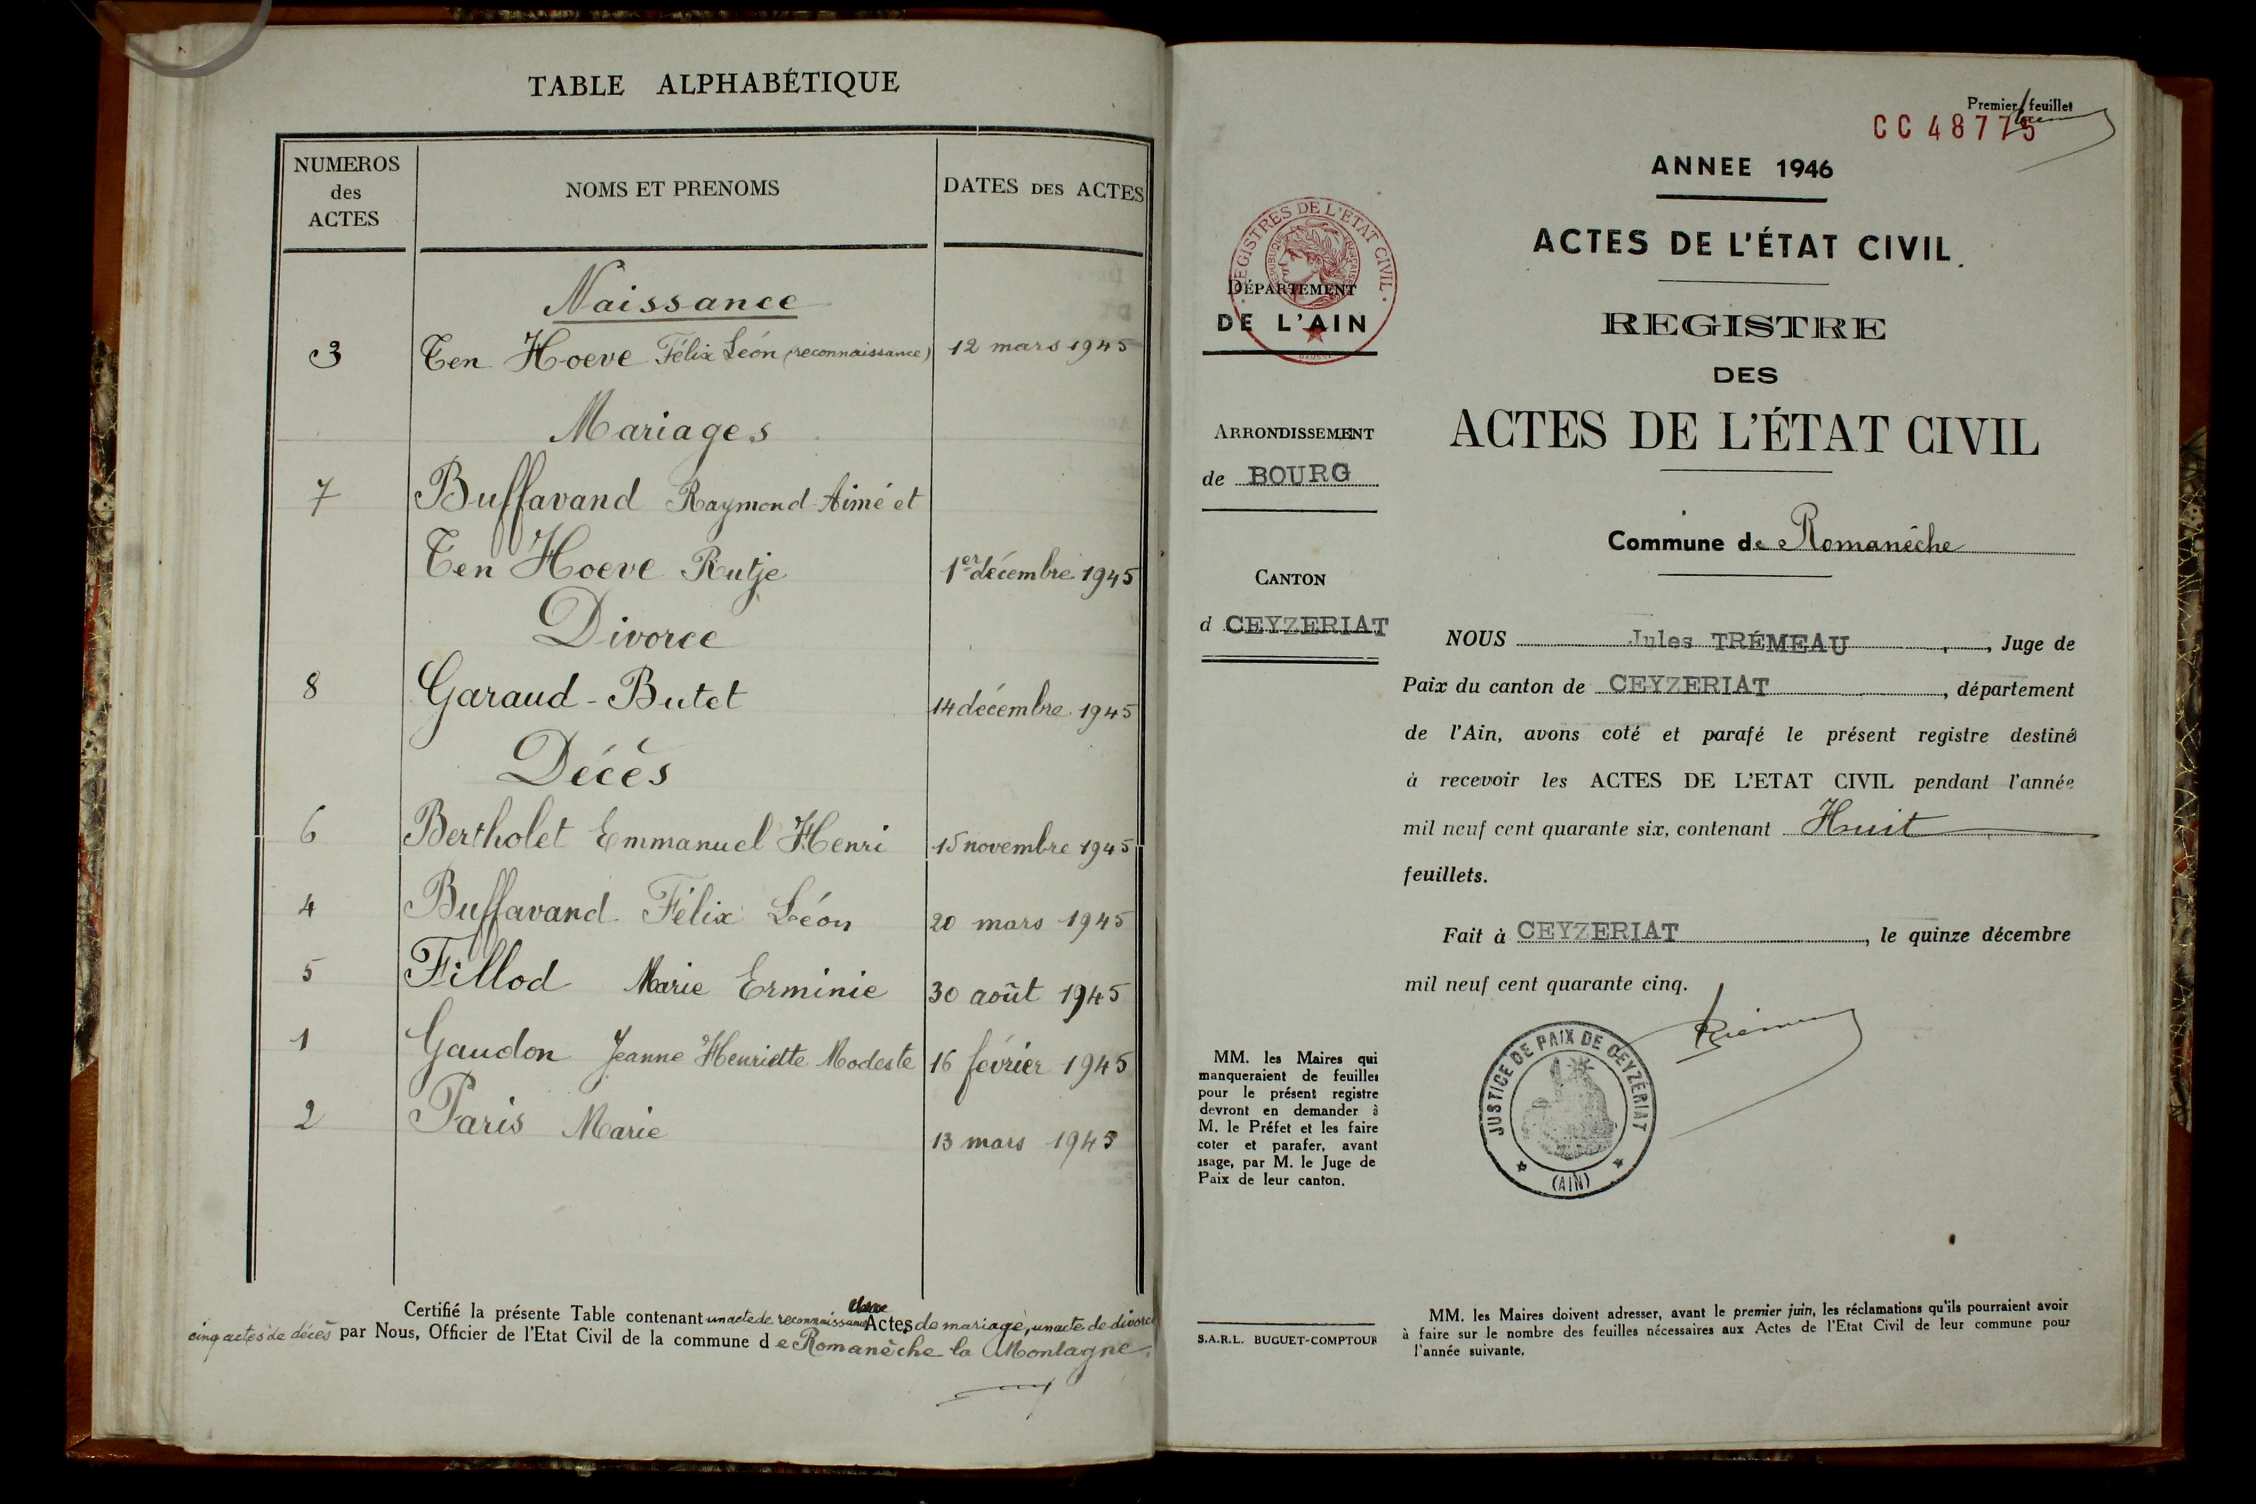 TABLE ALPHABÉTIQUE
NUMEROS
des
ACTES
NOMS ET PRENOMS
DATES DES ACTES
Naissance
3 Ten Hoeve Félix Léon (reconnaissance) 12 mars 1945
Mariages
7 Buffavand Raymond Aimé et
Ten Hoeve Rutje 1er décembre 1945
Divorce
8 Garaud - Butet 14 décembre 1945
Décès
6 Bertholet Emmanuel Henri 15 novembre 1945
4 Buffavand Félix Léon 20 mars 1945
5 Fillod Marie Erminie 30 août 1945
1 Gaudon Jeanne Henriette Modeste 16 février 1945
2 Paris Marie 13 mars 1945
Certifié la présente Table contenant un acte de reconnaissance Actes de mariage, un acte de divorce
cinq actes de décès par Nous, Officier de l'Etat Civil de la commune de Romanèche la Montagne.
Premier feuillet
CC 48775
ANNEE 1946
ACTES DE L'ÉTAT CIVIL
REGISTRE
DES
ACTES DE L'ÉTAT CIVIL
Commune de Romanèche
REGISTRES DE L'ETAT CIVIL
REPUBLIQUE FRANÇAISE
DÉPARTEMENT
DE L'AIN
ARRONDISSEMENT
de BOURG
CANTON
d CEYZERIAT
NOUS Jules TRÉMEAU, Juge de
Paix du canton de CEYZERIAT, département
de l'Ain, avons coté et parafé le présent registre destiné
à recevoir les ACTES DE L'ETAT CIVIL pendant l'année
mil neuf cent quarante six, contenant Huit
feuillets.
Fait à CEYZERIAT, le quinze décembre
mil neuf cent quarante cinq.
JUSTICE DE PAIX DE CEYZÉRIAT
(AIN)
MM. les Maires qui
manqueraient de feuilles
pour le présent registre
devront en demander à
M. le Préfet et les faire
coter et parafer, avant
usage, par M. le Juge de
Paix de leur canton.
S.A.R.L. BUGUET-COMPTOUR
MM. les Maires doivent adresser, avant le premier juin, les réclamations qu'ils pourraient avoir
à faire sur le nombre des feuilles nécessaires aux Actes de l'Etat Civil de leur commune pour
l'année suivante.